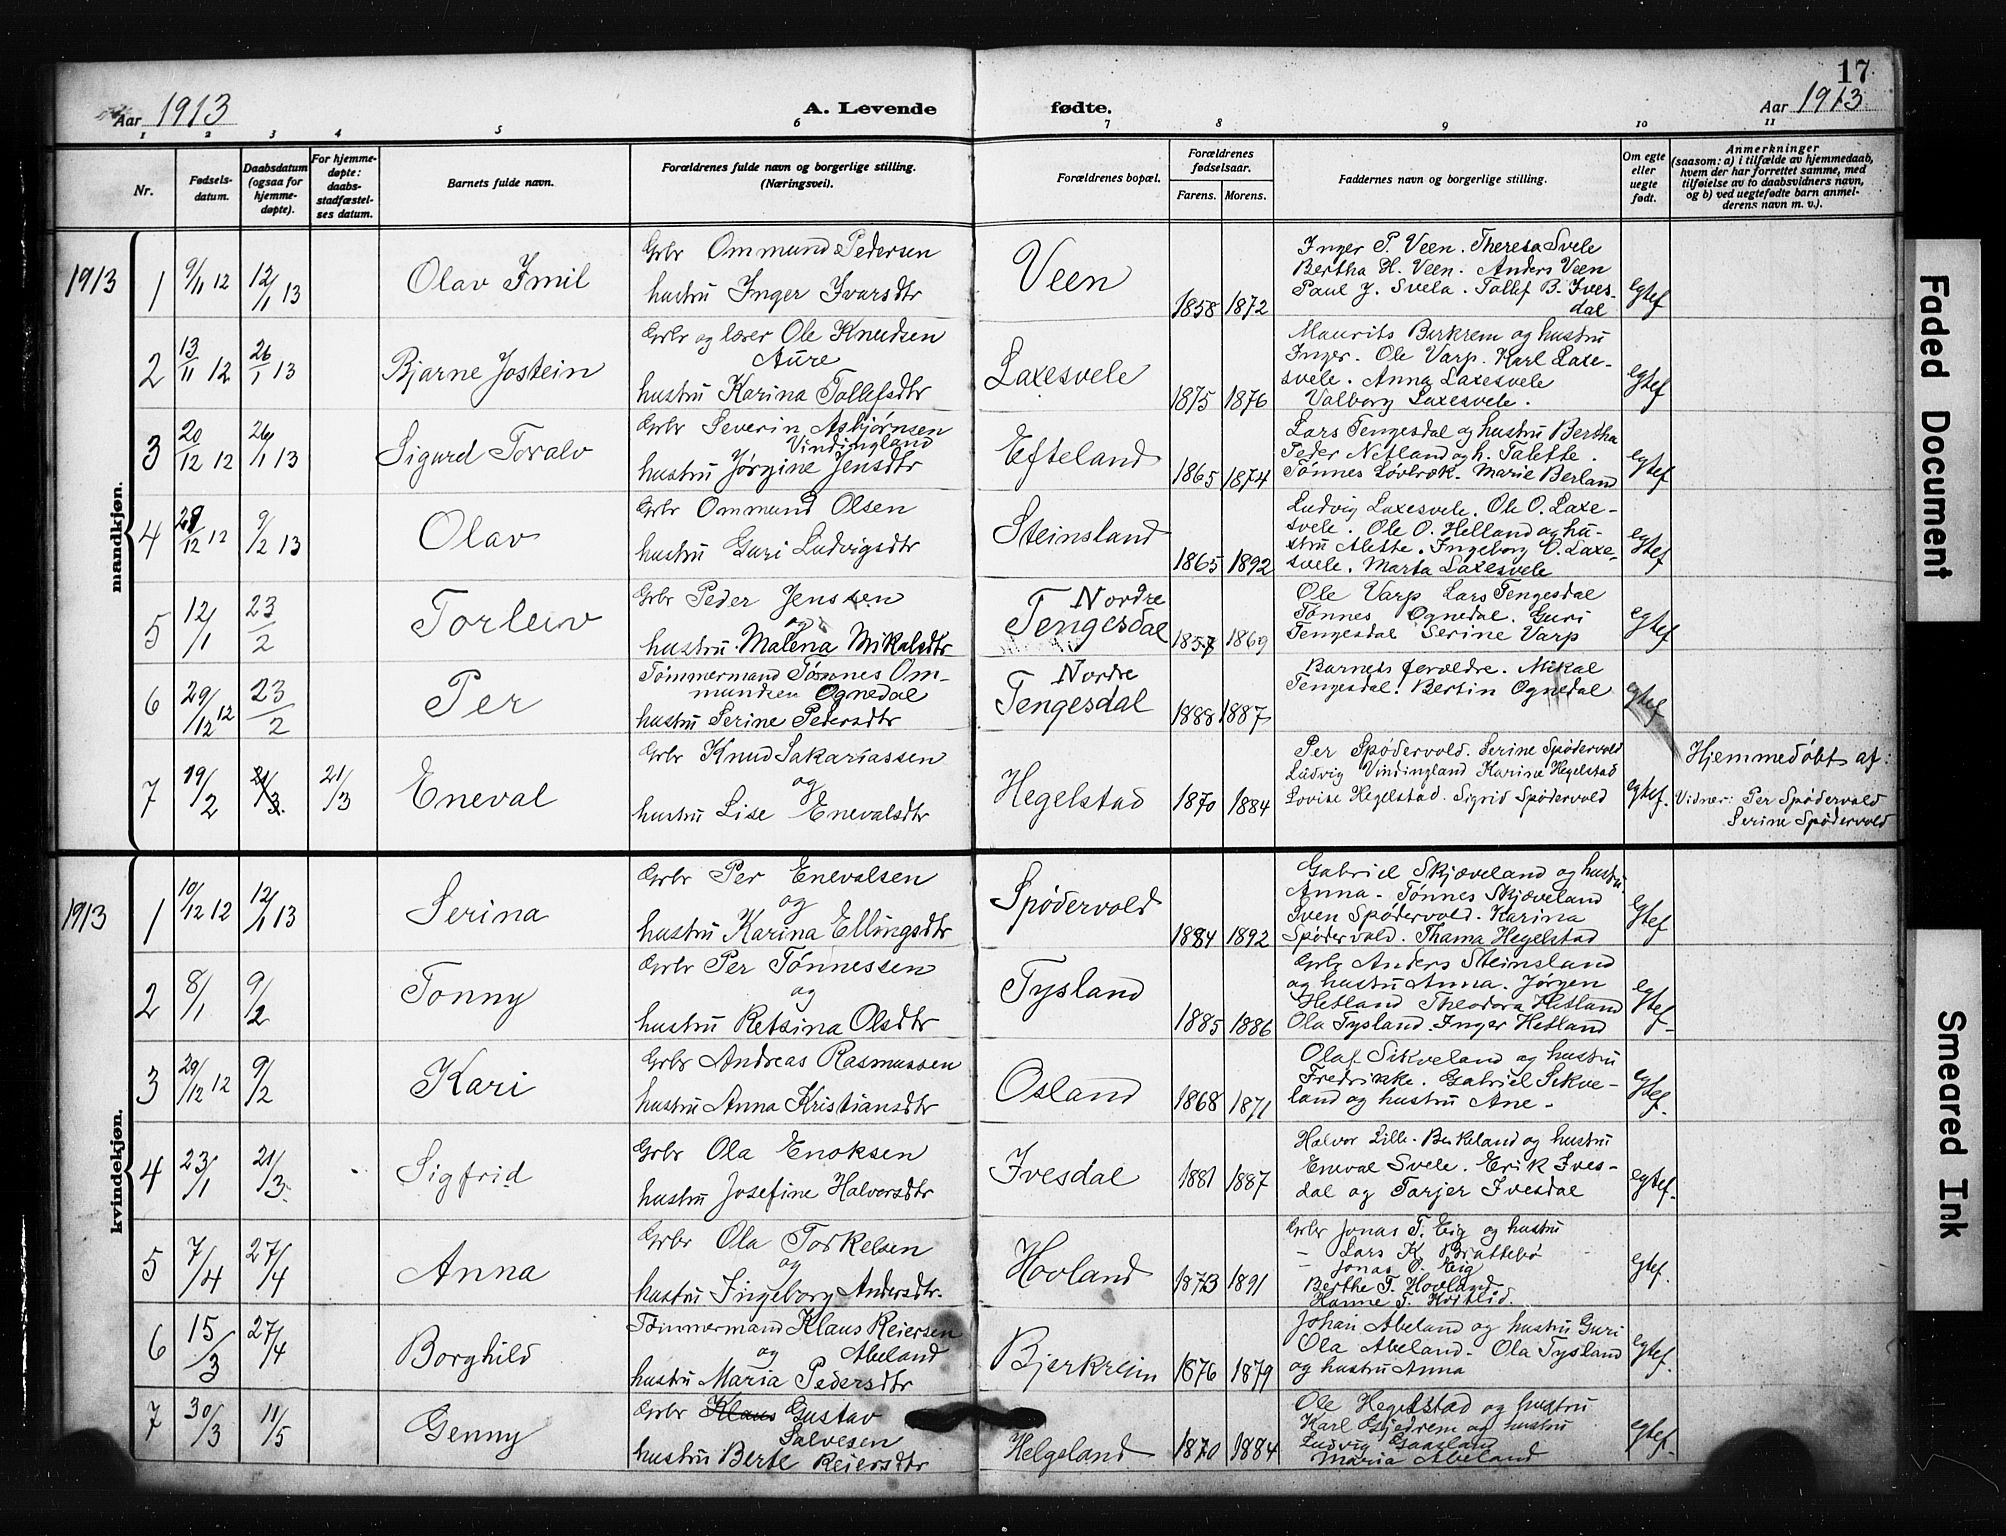 17
Aar 1913 A. Levende fødte. Aar 1913
1 2 3 4 5 6 7 8 9 10 11
Nr. Fødsels-datum. Daabsdatum (ogsaa for hjemme-døpte). For hjemme-døpte: daabs-stadfæstel-ses datum. Barnets fulde navn. Forældrenes fulde navn og borgerlige stilling. (Næringsvei). Forældrenes bopæl. Forældrenes fødselsaar. Farens. Morens. Faddernes navn og borgerlige stilling. Om egte eller uegte født. Anmerkninger (saasom: a) i tilfælde av hjemmedaab, hvem der har forrettet samme, med tilføielse av to daabsvidners navn, og b) ved uegtefødte barn anmel-derens navn m. v.).
mandkjøn.
1913 1 9/11 12 12/1 13 Olav Imil Grbr Ommund Pedersen
hustru Inger Ivarsdtr Veen 1858 1872 Inger P. Veen. Theresa Svele
Bertha H. Veen. Anders Veen
Paul J. Svela. Tollef B. Ives-
dal egtef
2 13/11 12 26/1 13 Bjarne Jostein Grbr og lærer Ole Knudsen
Aure
hustru Karina Tollefsdtr Laxesvele 1875 1876 Maurits Birkrem og hustru
Inger. Ole Varp. Karl Laxe-
svele. Anna Laxesvele
Valborg Laxesvele. egtef
3 20/12 12 26/1 13 Sigurd Toralv Grbr Severin Asbjørnsen
Vindingland
hustru Jørgine Jensdtr Efteland 1865 1874 Lars Tengesdal og hustru Bertha
Peder Netland og h. Talette.
Tønnes Løvbræk. Marie Berland egtef
4 12 9/2 13 Olav Grbr Ommund Olsen
hustru Guri Ludvigsdtr Steinsland 1865 1892 Ludvig Laxesvele. Ole O. Laxe-
svele. Ole O. Helland og hu-
stru Alette. Ingeborg O. Laxe-
svele. Marta Laxesvele egtef
5 12/1 23/2 Torleiv Grbr Peder Jenssen
og
hustru Malena Mikalsdtr Nordre
Tengesdal 1857 1869 Ole Varp Lars Tengesdal
Tønnes Ognedal. Guri
Tengesdal Serine Varp egtef
6 29/12 12 23/2 Per Tømmermand Tønnes Om-
mundsen Ognedal
hustru Serine Pedersdtr Nordre
Tengesdal 1888 1887 Barnets forældre. Mikal
Tengesdal. Bertin Ognedal egtef
7 19/2 21/3 21/3 Eneval Grbr Knud Sakariassen
og
hustru Lise Enevalsdtr Hegelstad 1870 1884 Per Spødervold. Serine Spødervold
Ludvig Vindingland Karine Hegelstad
Lovise Hegelstad. Sigrid Spødervold egtef. Hjemmedøbt af:
Vidner: Per Spødervold
Serine Spødervold
kvindekjøn.
1913 1 10/12 12 12/1 13 Serina Grbr Per Enevalsen
og
hustru Karina Ellingsdtr Spødervold 1884 1892 Gabriel Skjæveland og hustru
Anna - Tønnes Skjæveland
Sven Spødervold. Karina
Spødervold. Thama Hegelstad egtef
2 8/1 9/2 Tonny Grbr Per Tønnessen
og
hustru Retsina Olsdtr Tysland 1885 1886 Grbr Anders Steinsland
og hustru Anna. Jørgen
Hetland Theodora Hetland
Ola Tysland. Inger Hetland egtef-
3 29/12 12 9/2 Kari Grbr Andreas Rasmussen
hustru Anna Kristiansdtr Osland 1868 1871 Olaf Sikveland og hustru
Fredrikke. Gabriel Sikve-
land og hustru Ane - egtef.
4 23/1 21/3. Sigfrid Grbr Ola Enoksen
hustru Josefine Halversdtr Ivesdal 1881 1887 Halvor Lille-Birkeland og hustru
Eneval Svele. Erik Ives-
dal og Tarjer Ivesdal egtef.
5 7/4 27/4 Anna Grbr Ola Torkelsen
og
hustru Ingeborg Andersdtr. Hovland 1873 1891 Grbr Jonas T. Eig og hustru
- Lars K. Brattebø
- Jonas O. Eig
Berthe T. Hovland
Hanne T. egtef.
6 15/3 27/4 Borghild Tømmermand Klaus Reiersen
og Abeland
hustru Maria Pedersdtr Bjerkreim 1876 1879 Johan Abeland og hustru Guri
Ola Abeland - Ola Tysland
og hustru Anna egtef.
7 30/3 11/5 Genny Grbr Klaus Gustav
Salvesen
hustru Berte Reiersdtr Helgeland 1870 1884 Ole Hegelstad og hustru
Karl Gjedrem og hustru
Ludvig Gaasland
Maria Abeland egtef.
Faded Document
Smeared Ink